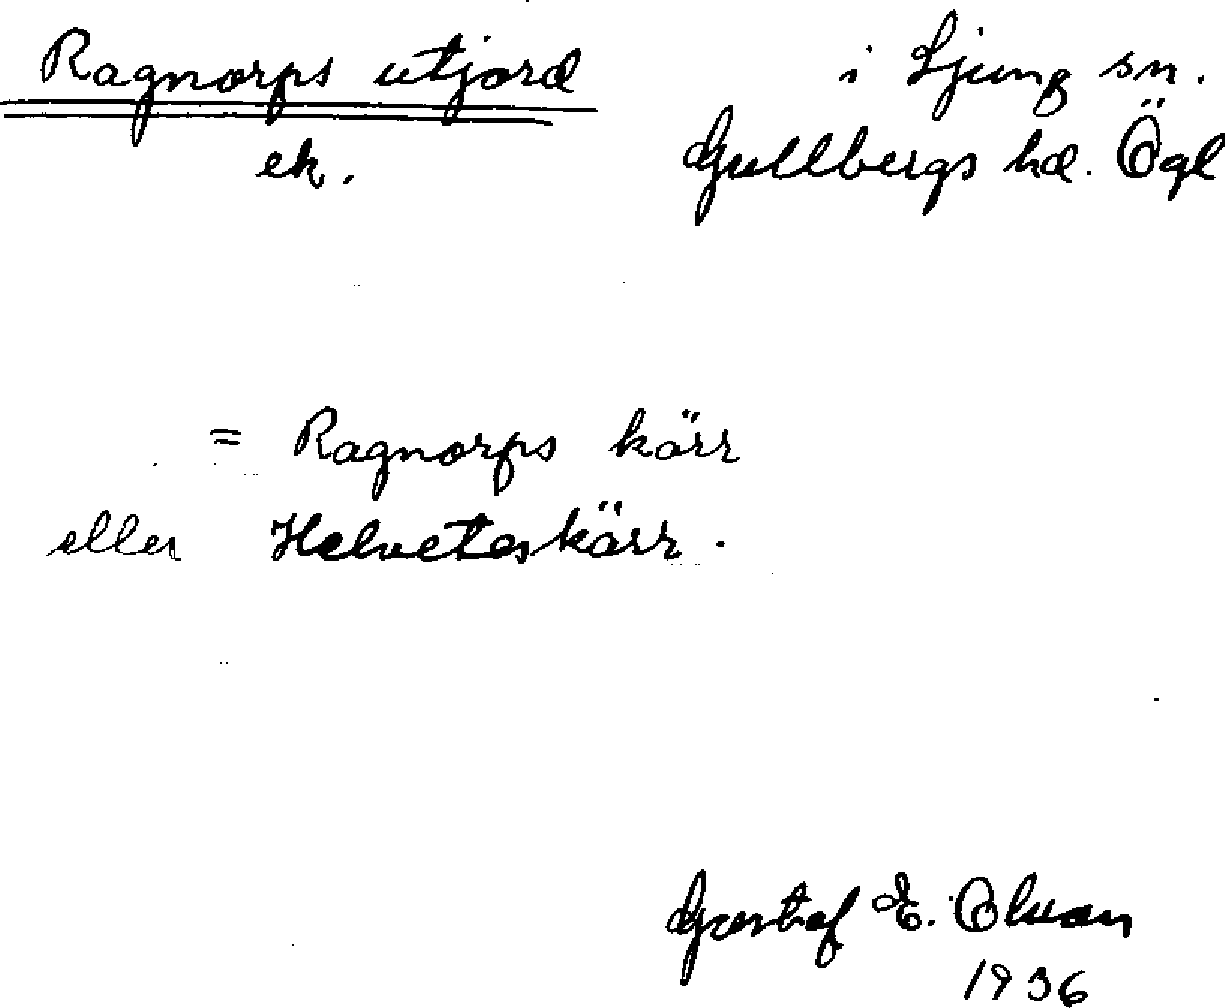 Ragnorps utjord
ek.
i Ljung sn.
Gullbergs hd. Ögl
= Ragnorps kärr
eller Helveteskärr.
Gustaf E. Olson
1936